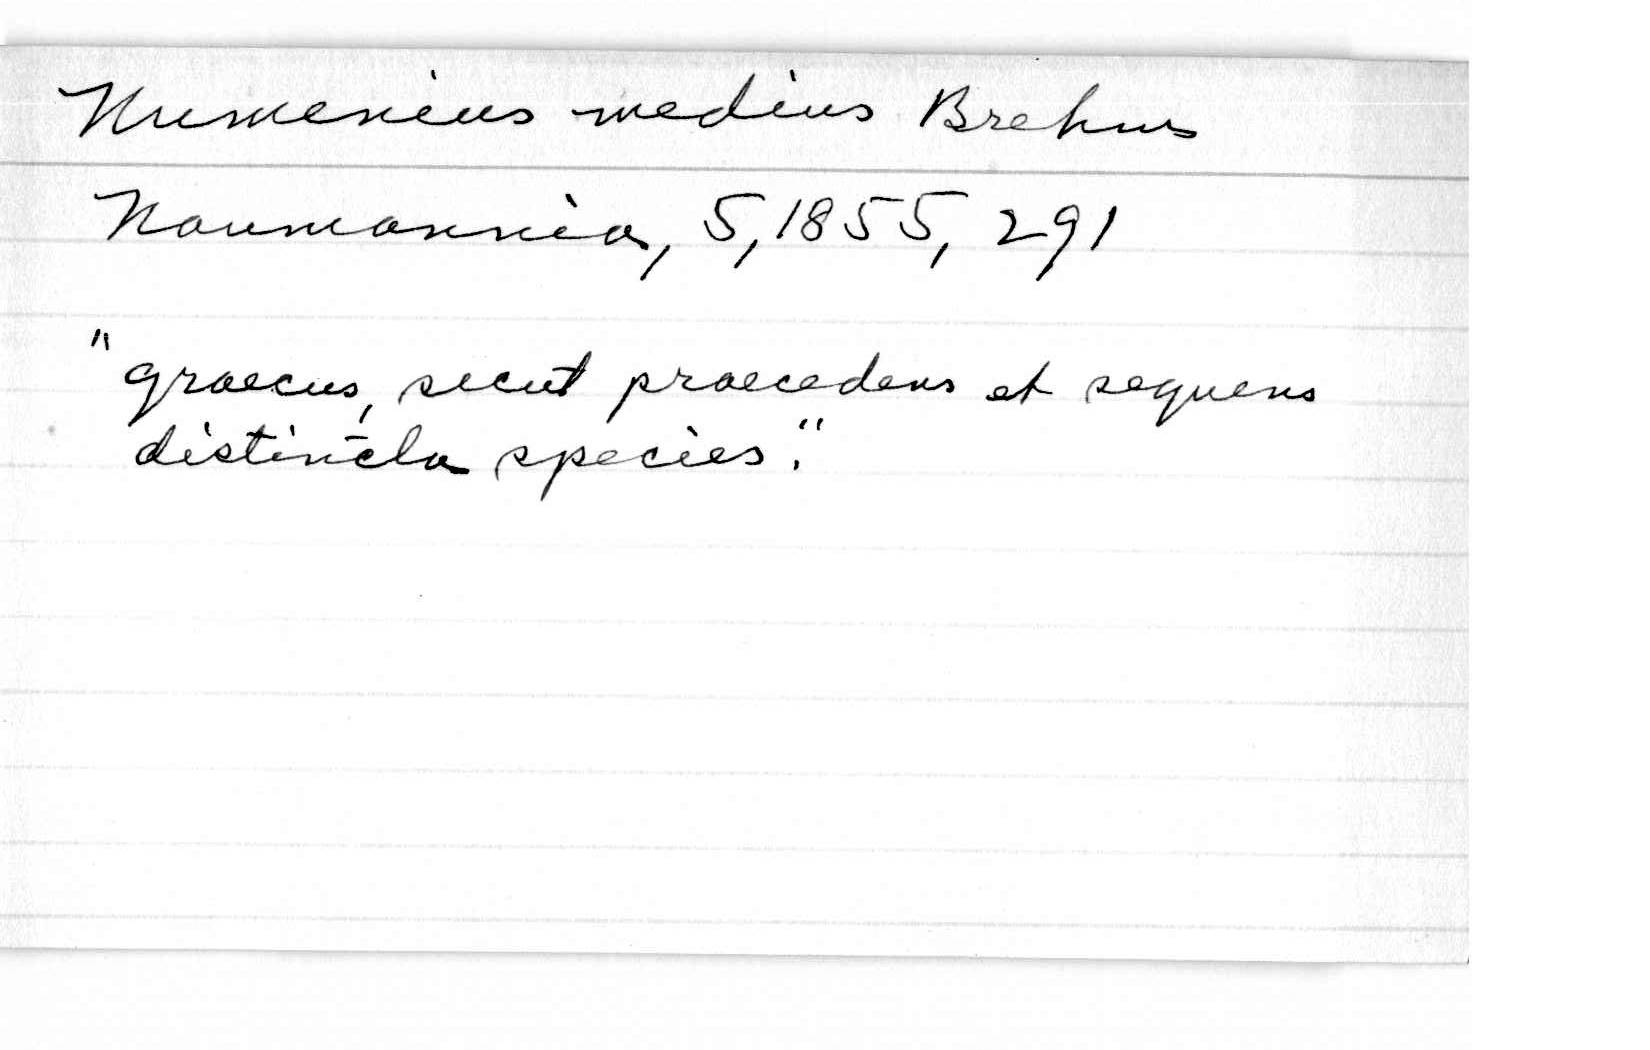 Numenius medius Brehm
Naumannia, 5, 1855, 291
"graecus, sicut praecedens et sequens
distincta species."